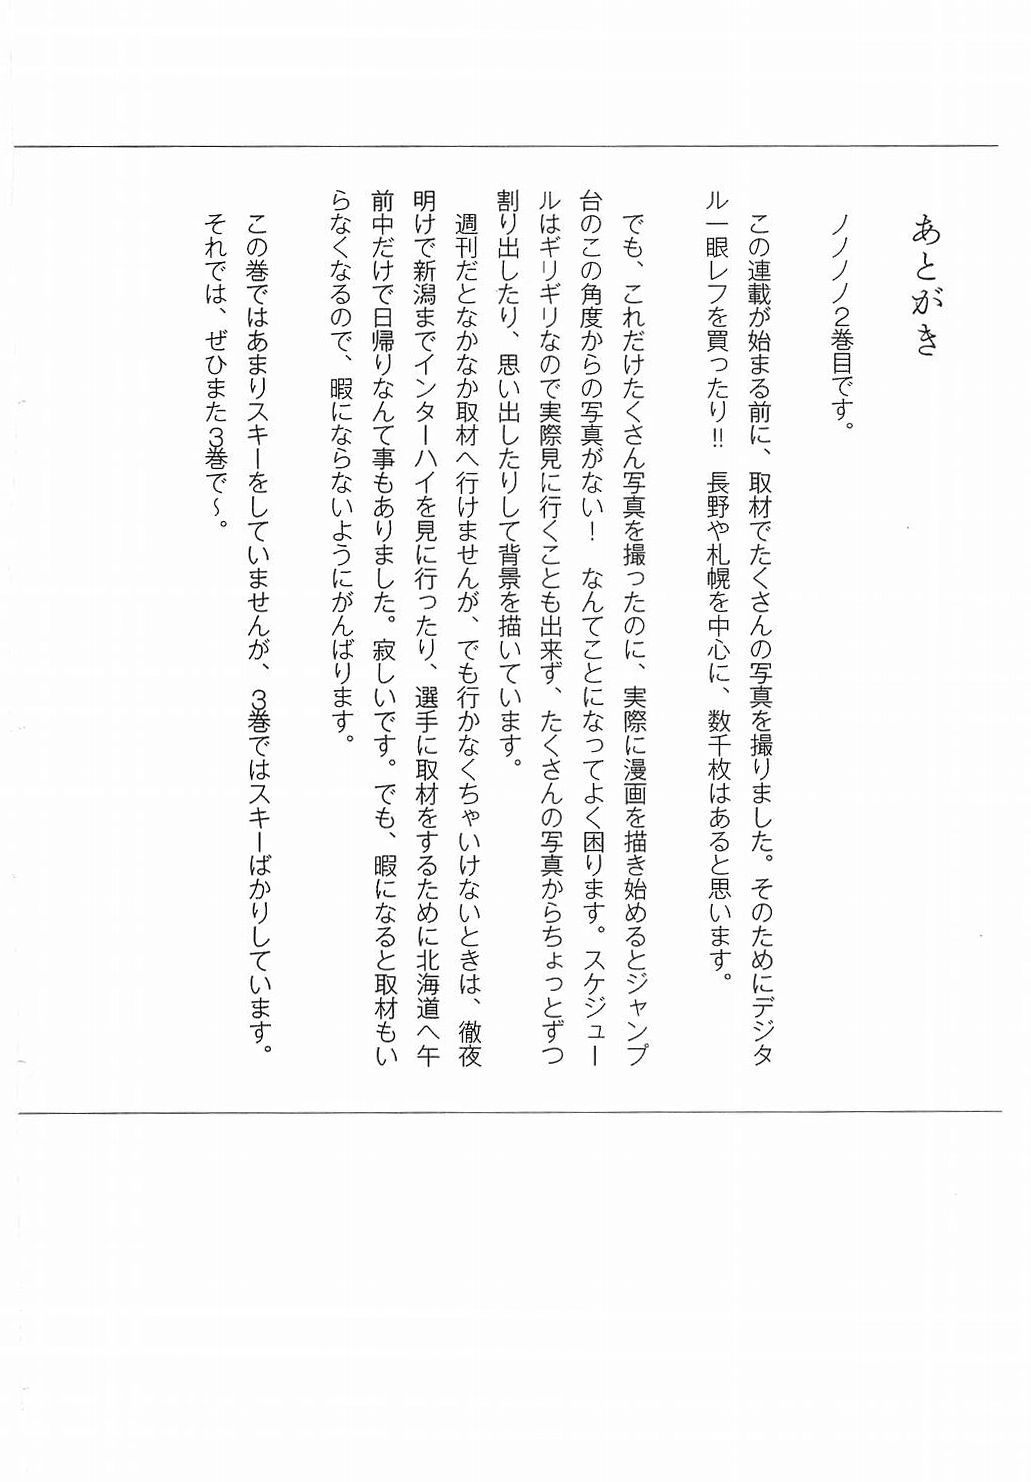 あとがき
ノノノノ2巻目です。
この連載が始まる前に、取材でたくさんの写真を撮りました。そのためにデジタ
ル一眼レフを買ったり!! 長野や札幌を中心に、数千枚はあると思います。
でも、これだけたくさん写真を撮ったのに、実際に漫画を描き始めるとジャンプ
台のこの角度からの写真がない! なんてことになってよく困ります。スケジュー
ルはギリギリなので実際見に行くことも出来ず、たくさんの写真からちょっとずつ
割り出したり、思い出したりして背景を描いています。
週刊だとなかなか取材へ行けませんが、でも行かなくちゃいけないときは、徹夜
明けで新潟までインターハイを見に行ったり、選手に取材をするために北海道へ午
前中だけで日帰りなんて事もありました。寂しいです。でも、暇になると取材もい
らなくなるので、暇にならないようにがんばります。
この巻ではあまりスキーをしていませんが、3巻ではスキーばかりしています。
それでは、ぜひまた3巻で〜。